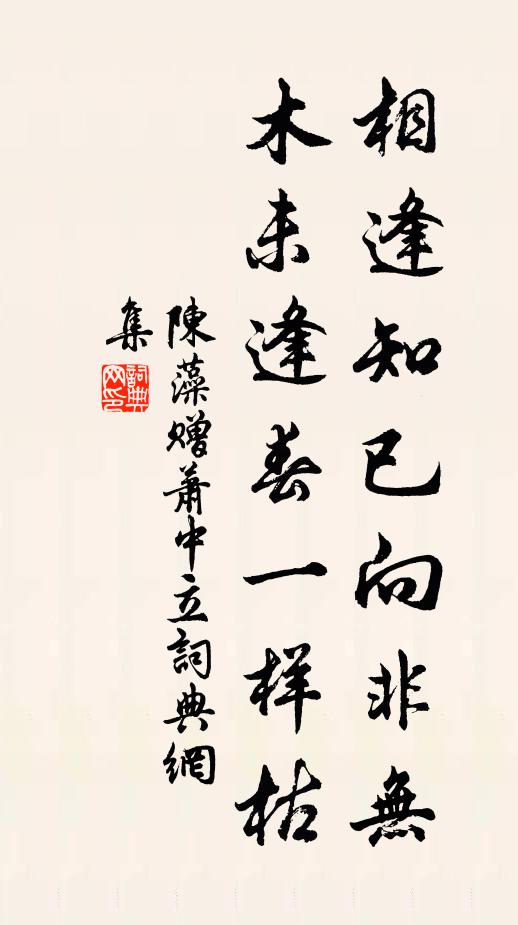 相逢知已向非無
木未逢春一样枯
陳藻赠蕭中立詞典網
集
詞典网印